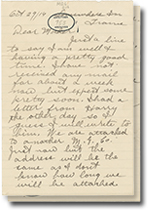 Oct 27/18
France
Dear
Just a line
to say I am well &
having a pretty good
time. I have not
received any mail
for about 2 weeks
now but expect some
pretty soon. I had a
letter from Harry
the other day so I
guess I will write to
him. We are attached
to another M.G. Co.
just now but the
address will be the
same as I don't
know how long we
will be attached